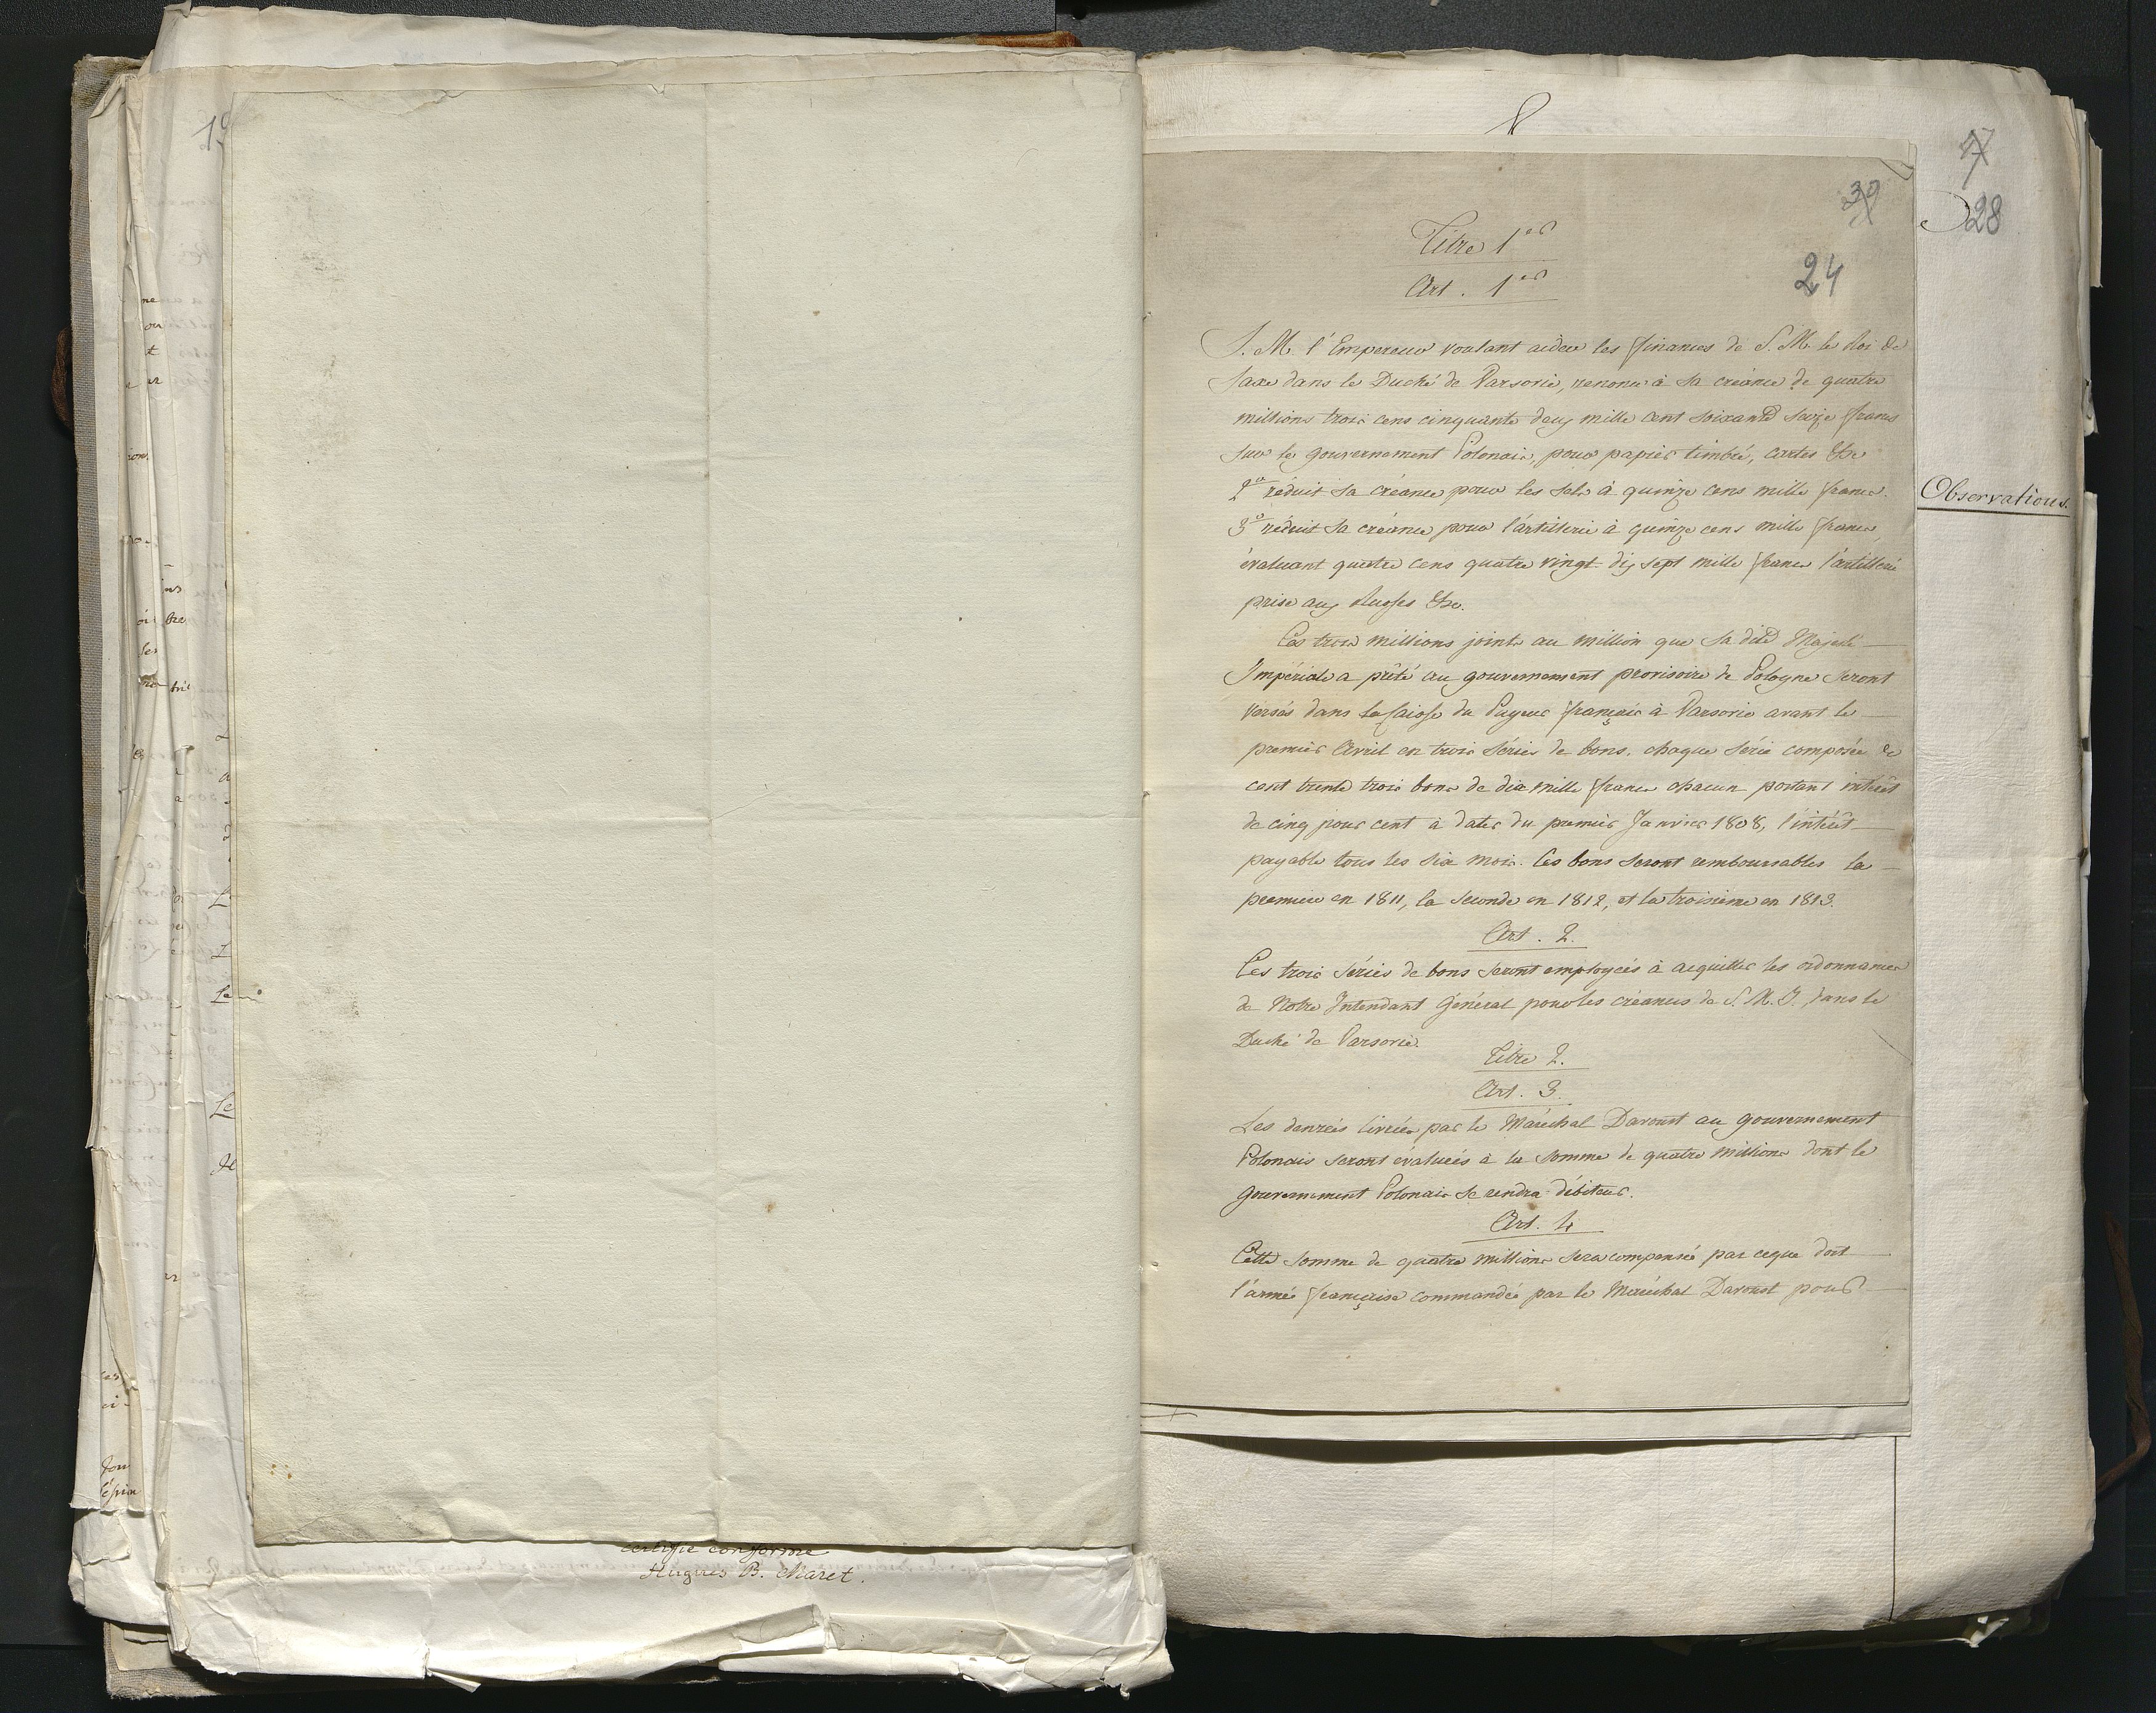 certifié conforme
Hugues B. Maret.
39
28
24
Titre 1er
Art. 1er
S. M. l'Empereur voulant aider les finances de S. M. le Roi de
Saxe dans le Duché de Varsovie, renonce à sa créance de quatre
millions trois cens cinquante deux mille cent soixante seize francs
sur le gouvernement Polonais, pour papier timbré, cartes &c
2o réduit sa créance pour les sels à quinze cens mille francs.
3o réduit sa créance pour l'artillerie à quinze cens mille francs,
évaluant quatre cens quatre vingt dix sept mille francs l'artillerie
prise aux Russes &c.
Ces trois millions joints au million que sa dite Majesté
Impériale a prêté au gouvernement provisoire de Pologne seront
versés dans la Caisse du Payeur français à Varsovie avant le
premier Avril en trois séries de bons, chaque série composée de
cent trente trois bons de dix mille francs chacun portant intérêt
de cinq pour cent à dater du premier Janvier 1808, l'intérêt
payable tous les six mois. Ces bons seront remboursables la
premiere en 1811, la seconde en 1812, et la troisieme en 1813.
Art. 2.
Ces trois séries de bons seront employées à acquitter les ordonnances
de Notre Intendant Général pour les créances de S. M. I. dans le
Duché de Varsovie.
Titre 2.
Art. 3.
Les denrées livrées par le Maréchal Davoust au gouvernement
Polonais seront évaluées à la somme de quatre millions dont le
gouvernement Polonais se rendra débiteur.
Art. 4
Cette somme de quatre millions sera compensée par ceque doit
l'armée française commandée par le Maréchal Davoust pour
Observations.